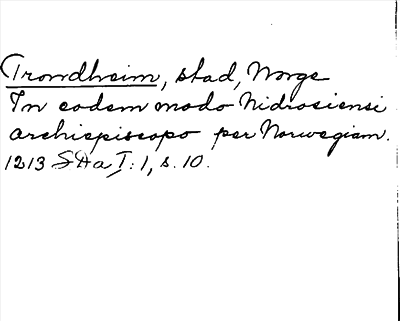 Trondheim, stad, Norge
In eodem modo Nidrosiensi
archiepiscopo per Norwegiam.
1213 SHa I:1, s. 10.